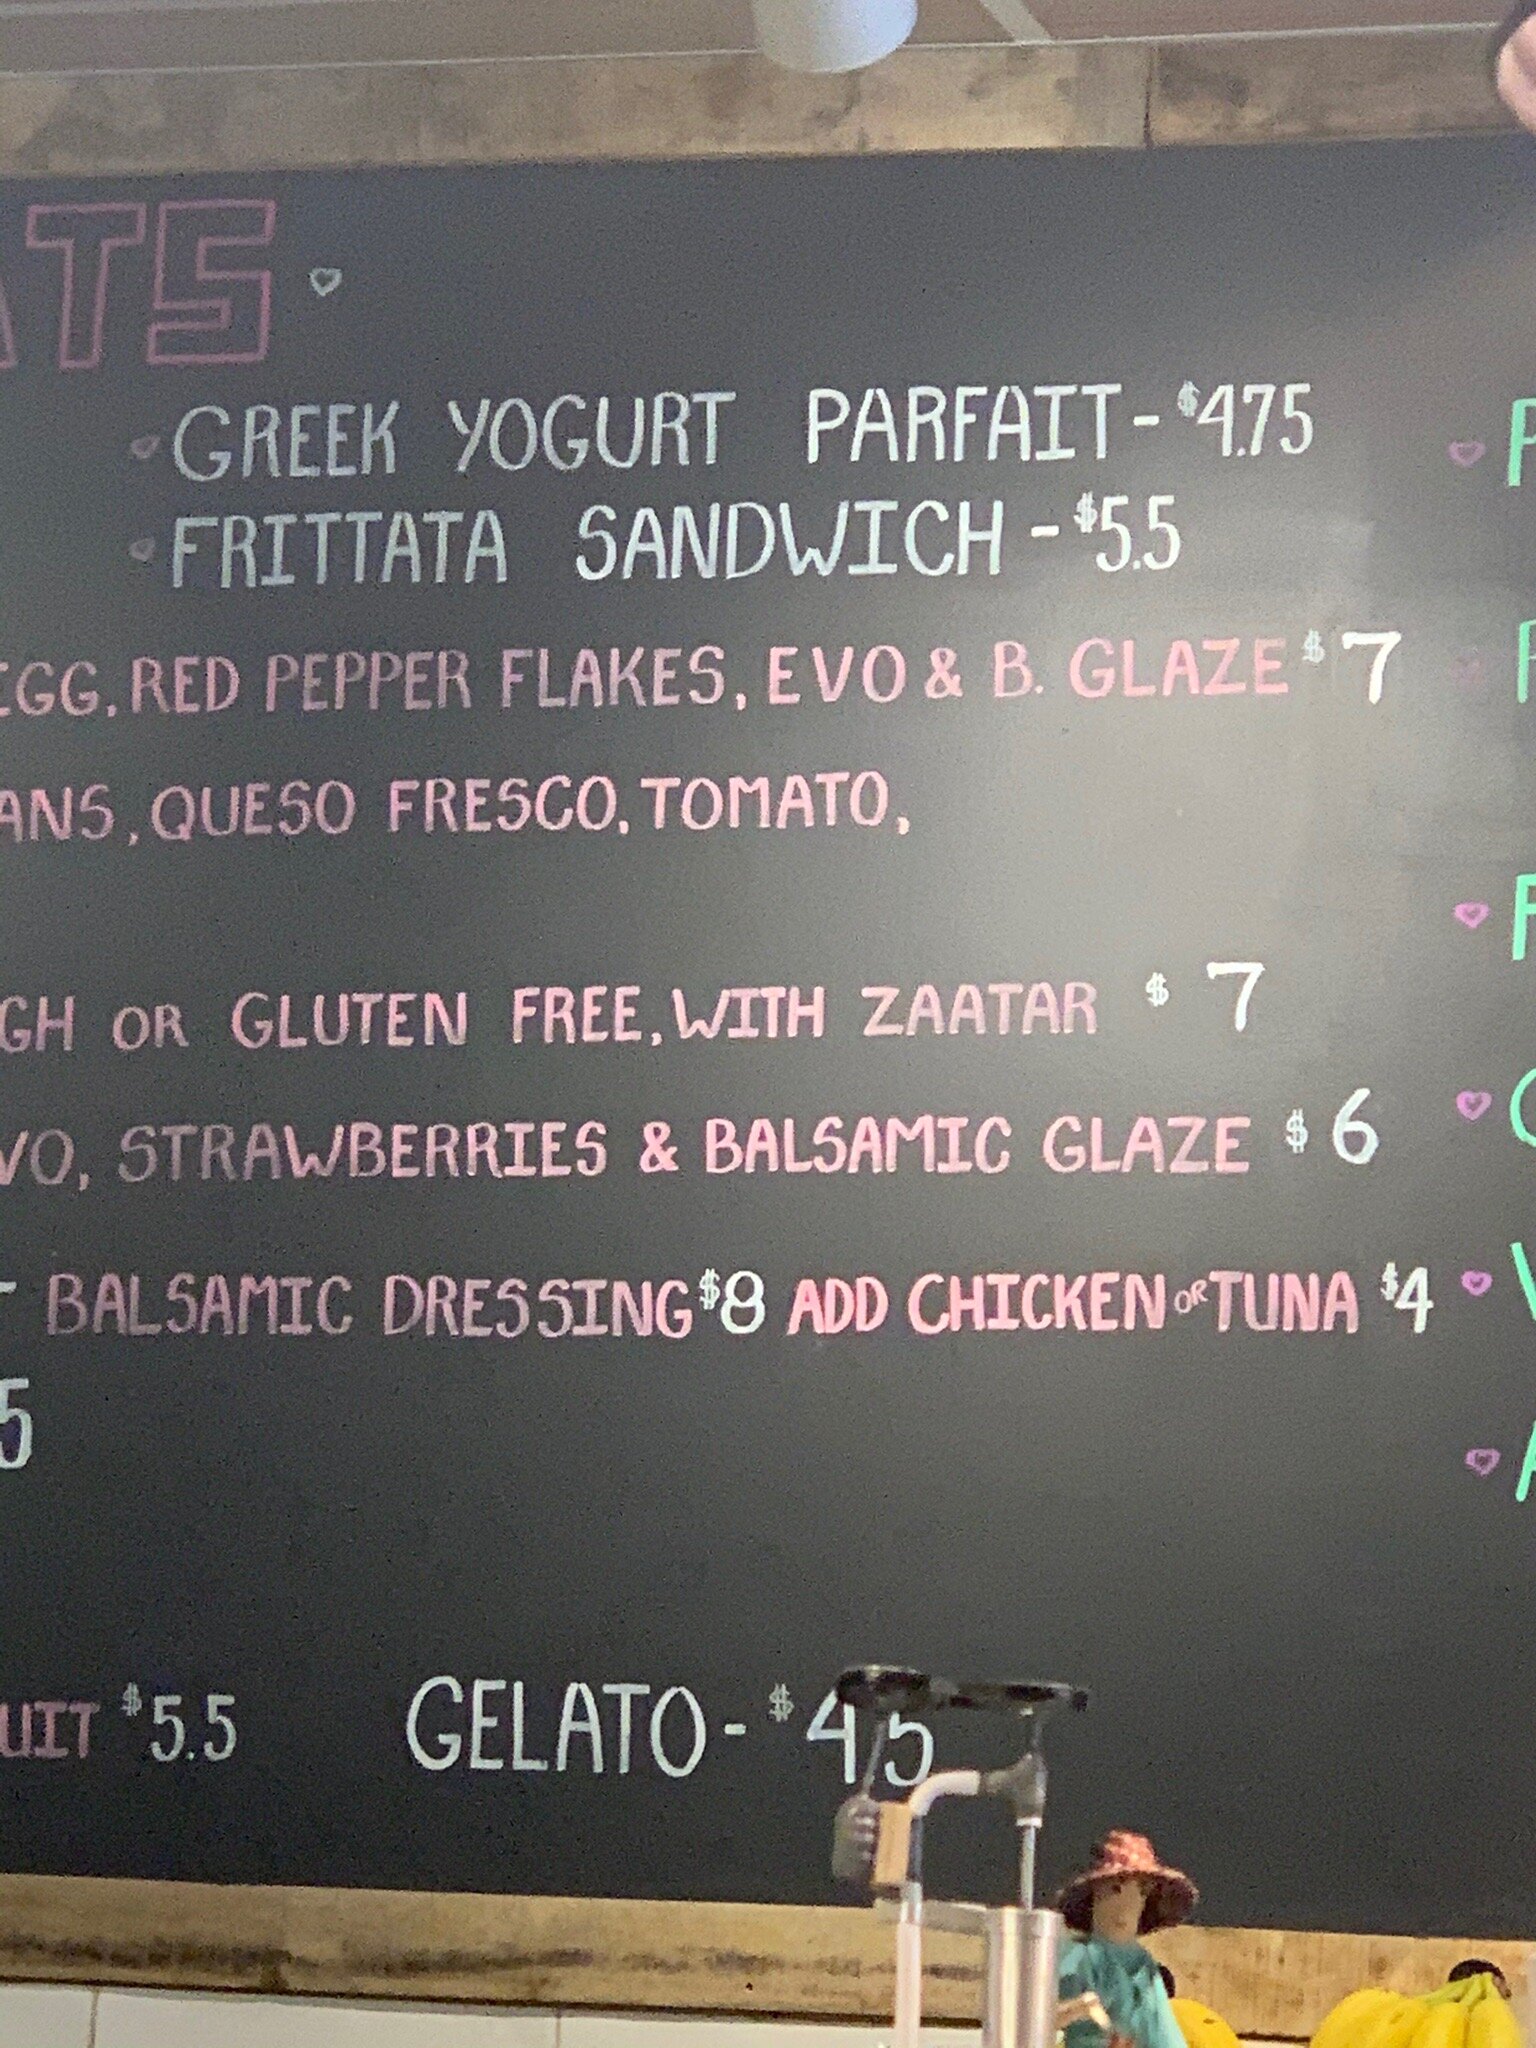 ATS
GREEK YOGURT PARFAIT - $4.75
FRITTATA SANDWICH - $5.5
EGG, RED PEPPER FLAKES, EVO & B. GLAZE $7
ANS, QUESO FRESCO, TOMATO,
GH OR GLUTEN FREE, WITH ZAATAR $7
VO, STRAWBERRIES & BALSAMIC GLAZE $6
BALSAMIC DRESSING $8 ADD CHICKEN OR TUNA $4
5
UIT $5.5 GELATO - $4.5